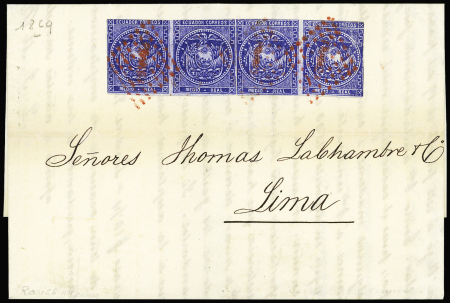 1869
ECUADOR CORREOS ECUADOR CORREOS ECUADOR CORREOS ECUADOR CORREOS
MEDIO REAL MEDIO REAL MEDIO REAL MEDIO REAL
Señores Thomas LaChambre & Cº
Lima